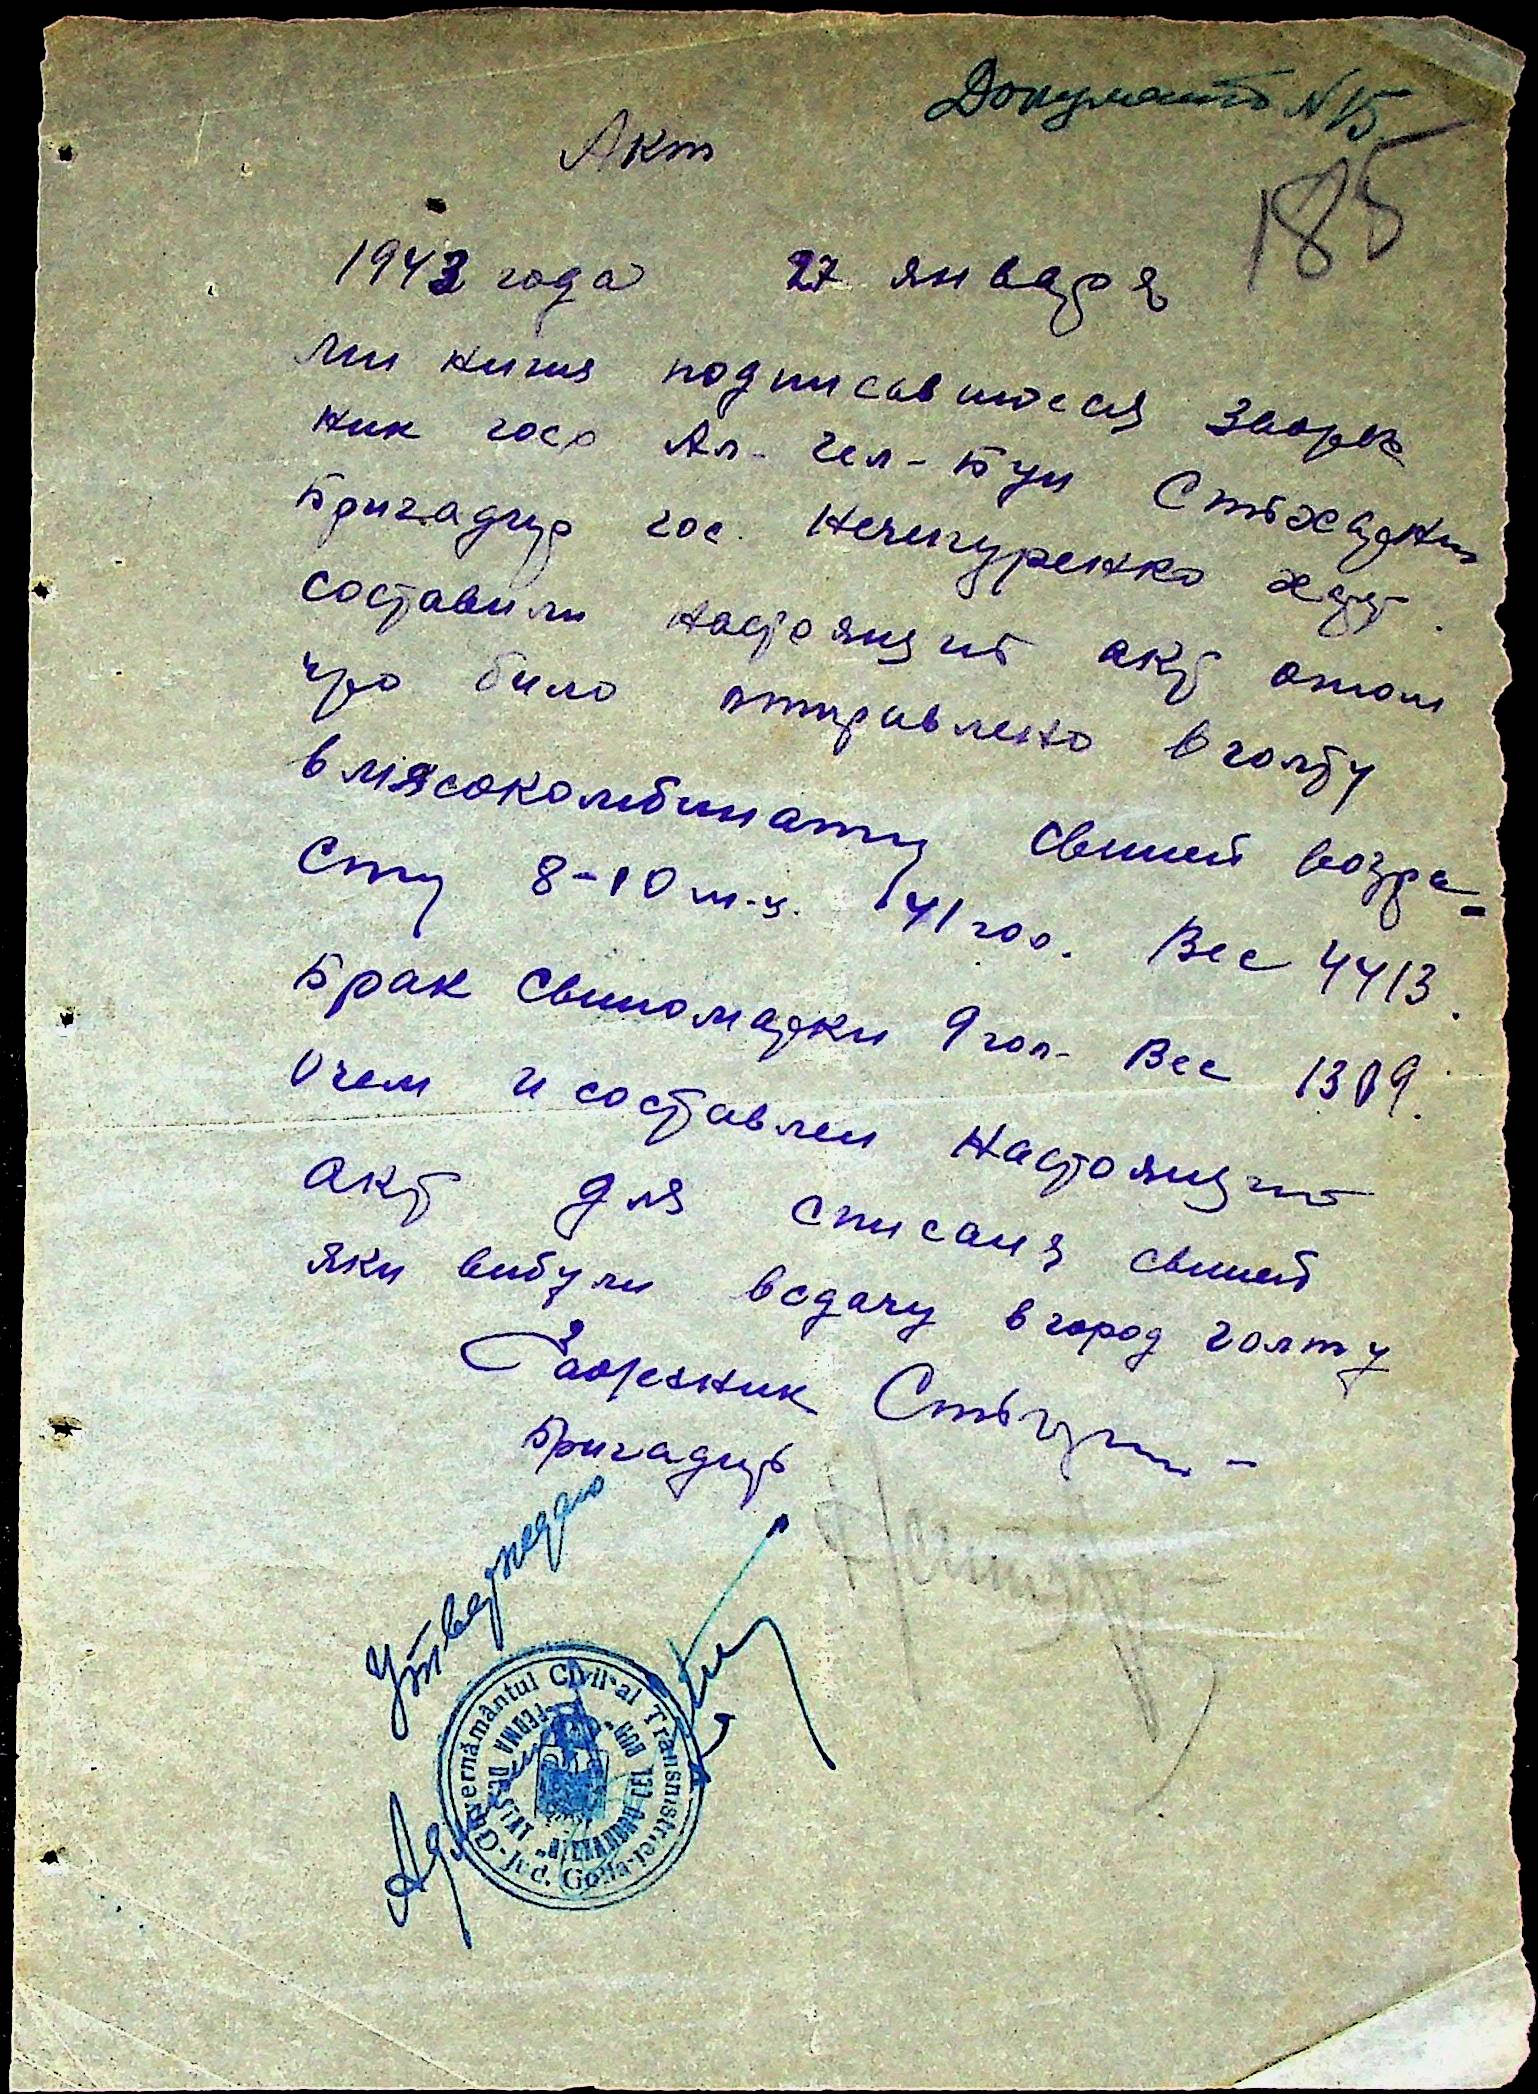 Документъ N 15
185
Акт
1943 года 27 января
Ми нижи подписавшиеся Заорж
ник гос. Ал-
Бригадир гос. Нечипуренко
составили настоящит акт отом
что било отправлено в голту
в мясокомбинату свиней возра-
сту 8-10 м-ц. 41 гол. Вес 4413.
Брак свиноматки 9 гол. Вес 1309.
Очем и составлен Настоящит
акт для списаня свиней
яки вибули всдачу в город голту
Бригадир
Утверждаю
Guvernământul Civil al Transnistriei
Jud. Golta
FERMA DE